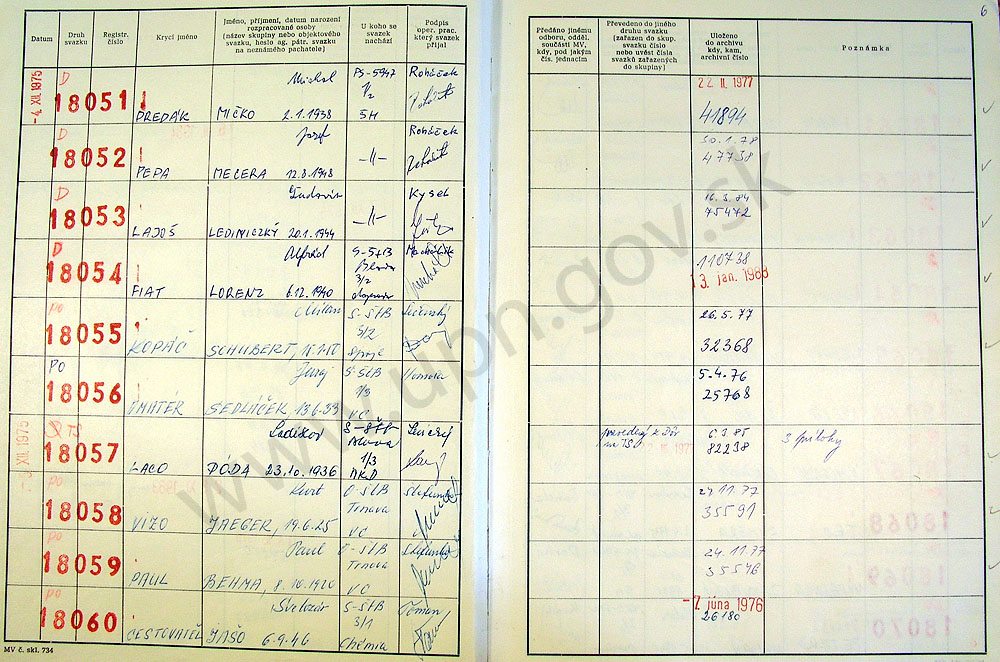 6
Datum
Druh svazku
Registr. číslo
Krycí jméno
Jméno, příjmení, datum narození rozpracované osoby (název skupiny nebo objektového svazku, heslo ag. pátr. svazku na neznámého pachatele)
U koho se svazek nachází
Podpis oper. prac. který svazek přijal
Předáno jinému odboru, odděl. součásti MV, kdy, pod jakým čís. jednacím
Převedeno do jiného druhu svazku (zařazen do skup. svazku číslo nebo uvést čísla svazků zařazených do skupiny)
Uloženo do archivu kdy, kam, archivní číslo
Poznámka
-4. XII. 1975
D
18051
PREDÁK
Michal
MIČKO 2.1.1938
PS-5947
1/2
5H
Roháček
22. II. 1977
41894
D
18052
PEPA
Jozef
MECERA 12.8.1948
-11-
Roháček
30.1.78
47738
D
18053
LAJOŠ
Ľudovít
LEDINICZKÝ 20.1.1944
-11-
Kysel
16.3.84
75472
D
18054
FIAT
Alfréd
LORENZ 6.12.1940
3/2
110738
13. jan. 1988
po
18055
KOPÁČ
SCHUBERT,
S-ŠtB
3/2
Spoje
26.5.77
32368
PO
18056
AMATÉR
Juraj
SEDLÁČEK, 13.6.33
S-ŠtB
1/3
VC
5.4.76
25768
TS
18057
LACO
Ladislav
PÓDA 23.10.1936
S-ŠtB
1/3
na TS
6.3.85
82238
3 prílohy
po
18058
VÍZO
Kurt
JAEGER, 19.6.25
O-ŠtB
Trnava
VC
24.11.77
35591
po
18059
PAUL
Paul
BEHMA, 8.10.1920
O-ŠtB
Trnava
VC
24.11.77
35546
po
18060
CESTOVATEĽ
Svetozár
JAŠO 6.9.46
S-ŠtB
3/1
Chémia
-7. júna 1976
26180
MV č. skl. 734
www.upn.gov.sk